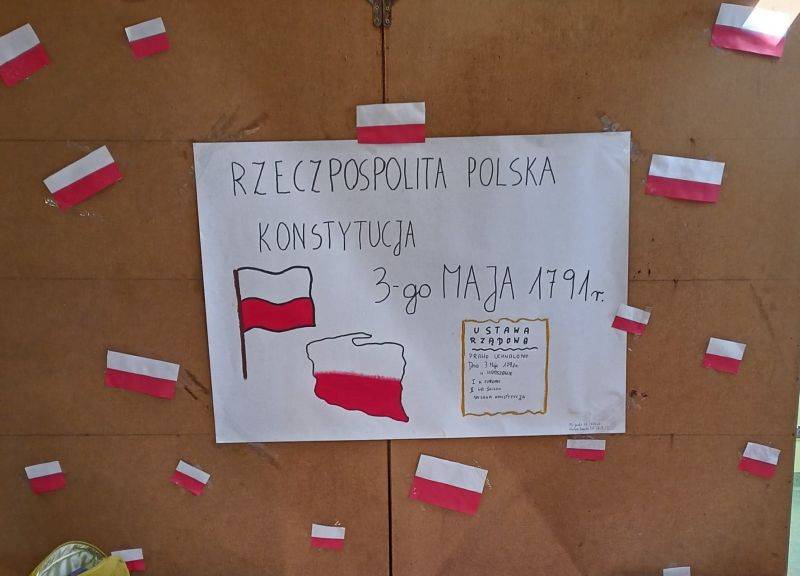 RZECZPOSPOLITA POLSKA
KONSTYTUCJA
3-go MAJA 1791r.
USTAWA
RZĄDOWA
PRAWO UCHWALONE
Dnia: 3 Maja 1791r.
w WARSZAWIE
I w EUROPIE